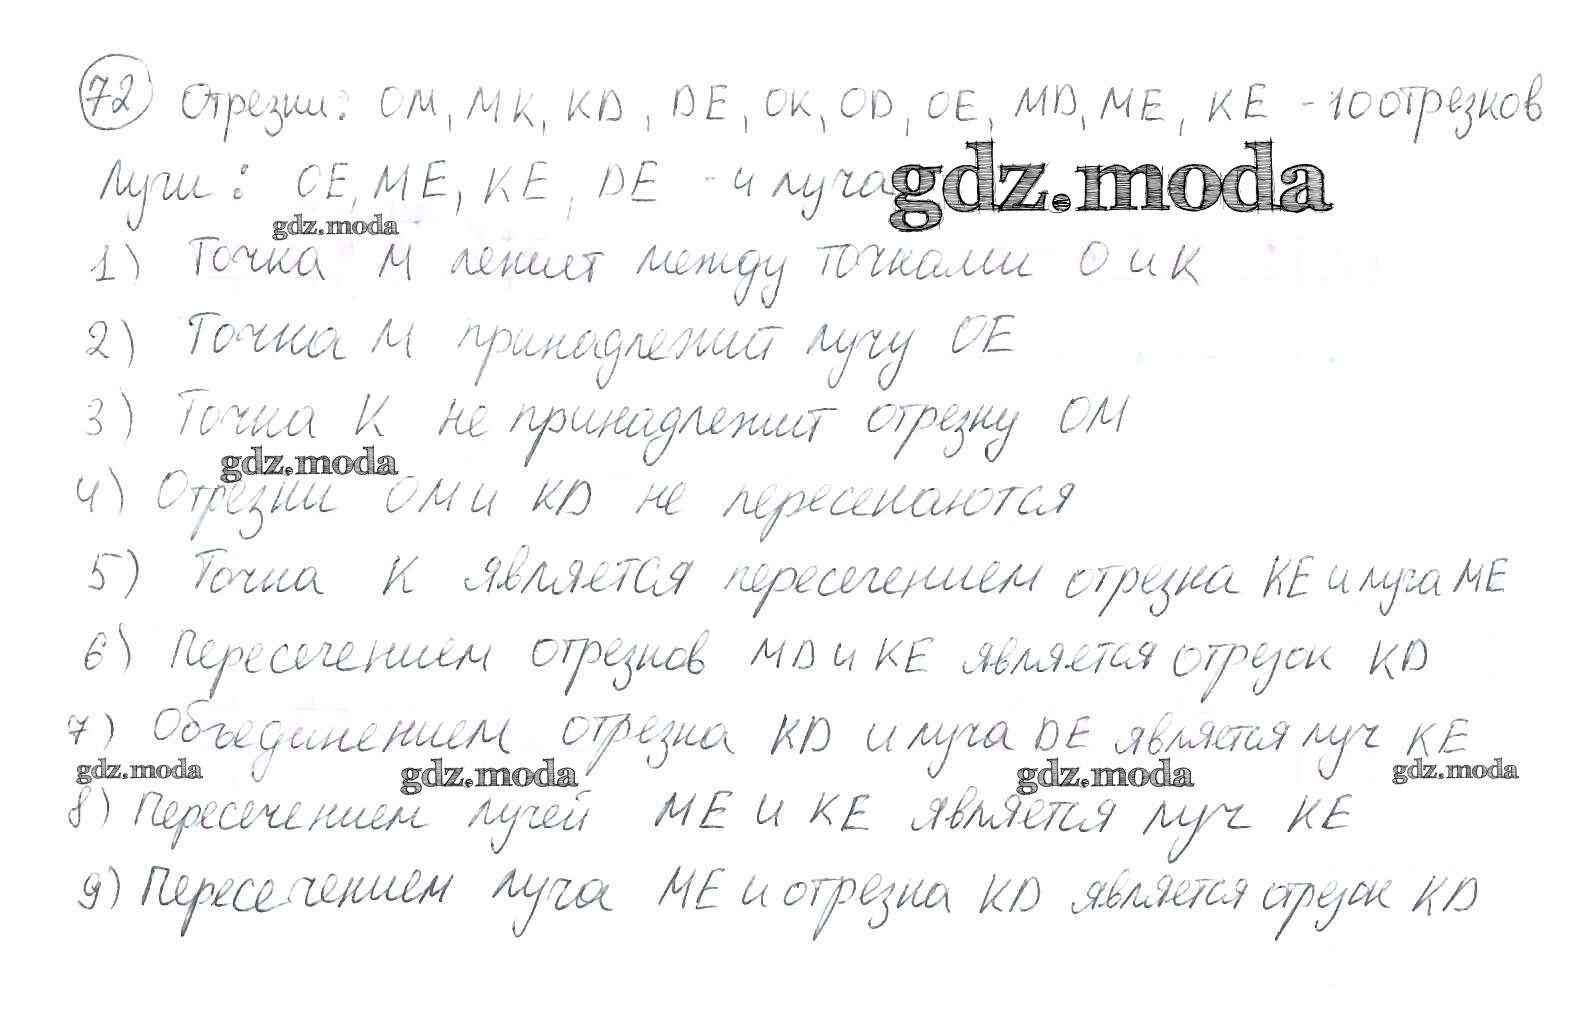 72 Отрезки: OM, MK, KD, DE, OK, OD, OE, MD, ME, KE - 10 отрезков
Лучи: OE, ME, KE, DE - 4 луча gdz.moda
gdz.moda
1) Точка M лежит между точками O и K
2) Точка M принадлежит лучу OE
3) Точка K не принадлежит отрезку OM
gdz.moda
4) Отрезки OM и KD не пересекаются
5) Точка K является пересечением отрезка KE и луча ME
6) Пересечением отрезков MD и KE является отрезок KD
7) Объединением отрезка KD и луча DE является луч KE
gdz.moda gdz.moda gdz.moda gdz.moda
8) Пересечением лучей ME и KE является луч KE
9) Пересечением луча ME и отрезка KD является отрезок KD